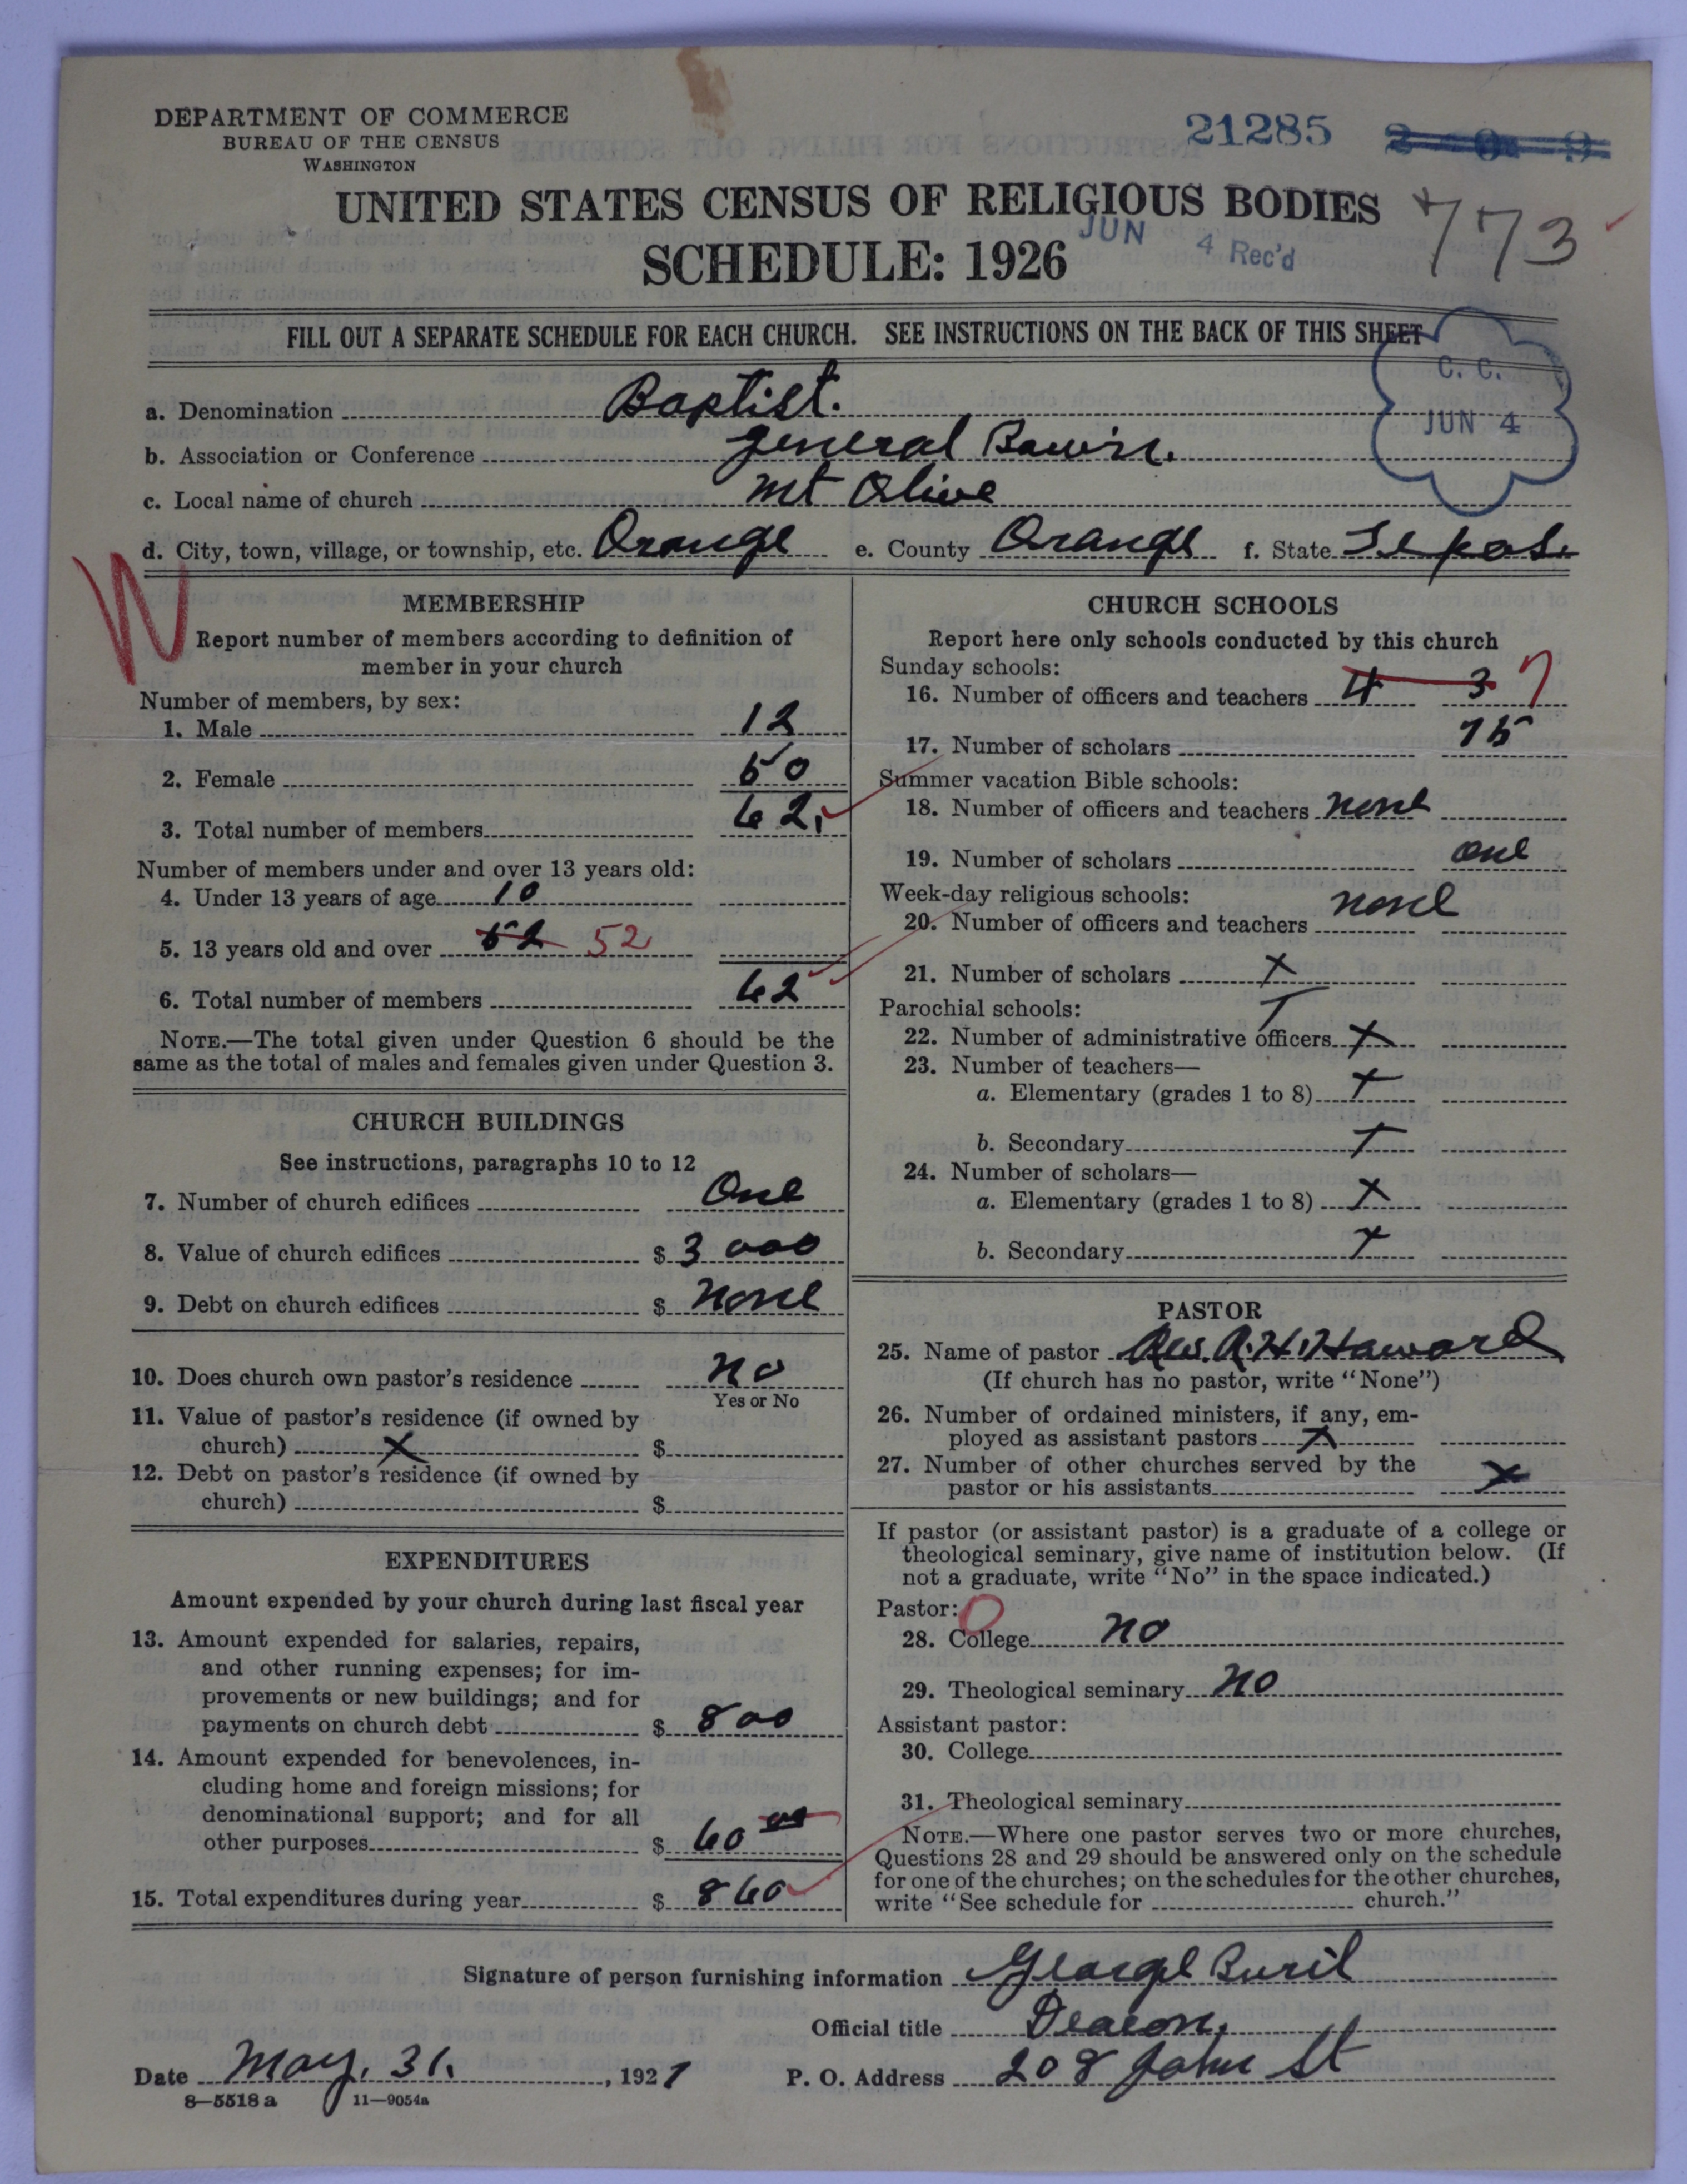 DEPARTMENT OF COMMERCE
BUREAU OF THE CENSUS
WASHINGTON
21285
UNITED STATES CENSUS OF RELIGIOUS BODIES
SCHEDULE: 1926
773
JUN 4 Rec'd
FILL OUT A SEPARATE SCHEDULE FOR EACH CHURCH. SEE INSTRUCTIONS ON THE BACK OF THIS SHEET
C. C.
JUN 4
a. Denomination Baptist.
b. Association or Conference General
c. Local name of church Mt Olive
d. City, town, village, or township, etc. Orange e. County Orange f. State
W
MEMBERSHIP
Report number of members according to definition of
member in your church
Number of members, by sex:
1. Male 12
2. Female 50
3. Total number of members 62
Number of members under and over 13 years old:
4. Under 13 years of age 10
5. 13 years old and over 52 52
6. Total number of members 62
NOTE.—The total given under Question 6 should be the
same as the total of males and females given under Question 3.
CHURCH BUILDINGS
See instructions, paragraphs 10 to 12
7. Number of church edifices One
8. Value of church edifices $ 3000
9. Debt on church edifices $ None
10. Does church own pastor's residence no
Yes or No
11. Value of pastor's residence (if owned by
church) X $
12. Debt on pastor's residence (if owned by
church) $
EXPENDITURES
Amount expended by your church during last fiscal year
13. Amount expended for salaries, repairs,
and other running expenses; for im-
provements or new buildings; and for
payments on church debt $ 800
14. Amount expended for benevolences, in-
cluding home and foreign missions; for
denominational support; and for all
other purposes $ 60 00
15. Total expenditures during year $ 860
CHURCH SCHOOLS
Report here only schools conducted by this church
Sunday schools:
16. Number of officers and teachers 4 3 7
17. Number of scholars 75
Summer vacation Bible schools:
18. Number of officers and teachers none
19. Number of scholars one
Week-day religious schools:
20. Number of officers and teachers none
21. Number of scholars X
Parochial schools:
22. Number of administrative officers X
23. Number of teachers—
a. Elementary (grades 1 to 8) X
b. Secondary X
24. Number of scholars—
a. Elementary (grades 1 to 8) X
b. Secondary X
PASTOR
25. Name of pastor Rev. A. H. Haward
(If church has no pastor, write "None")
26. Number of ordained ministers, if any, em-
ployed as assistant pastors X
27. Number of other churches served by the
pastor or his assistants X
If pastor (or assistant pastor) is a graduate of a college or
theological seminary, give name of institution below. (If
not a graduate, write "No" in the space indicated.)
Pastor: O
28. College no
29. Theological seminary no
Assistant pastor:
30. College
31. Theological seminary
NOTE.—Where one pastor serves two or more churches,
Questions 28 and 29 should be answered only on the schedule
for one of the churches; on the schedules for the other churches,
write "See schedule for church."
Signature of person furnishing information George
Official title Deacon.
Date May. 31. , 1927 P. O. Address 208 John St
8—5518 a 11—9054a